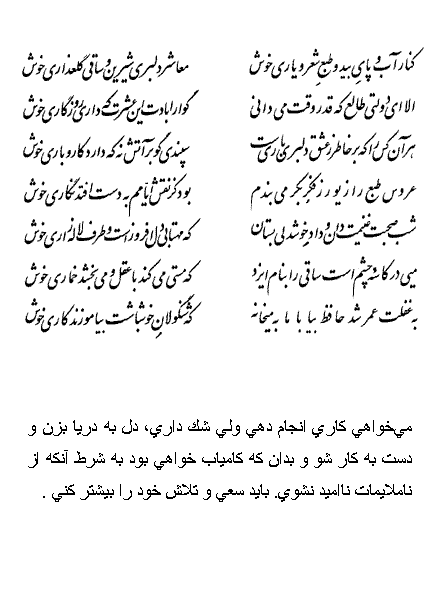 کنار آب و پای بید و طبع شعر و یاری خوش معاشر دلبری شیرین و ساقی گلعذاری خوش
الا ای دولتی طالع که قدر وقت می دانی گوارا بادت این عشرت که داری روزگاری خوش
هر آن کس را که بر خاطر ز عشق دلبری باریست سپندی گو بر آتش نه که دارد کار و باری خوش
عروس طبع را زیور ز فکر بکر می بندم بود کز نقش ایامم به دست افتد نگاری خوش
شب صحبت غنیمت دان و داد خوشدلی بستان که مهتابی دل افروزست و طرف لاله زاری خوش
میی در کاسه چشم است ساقی را بنام ایزد که مستی می کند با عقل و می بخشد خماری خوش
به غفلت عمر شد حافظ بیا با ما به میخانه که شنگولان خوشباشت بیاموزند کاری خوش
مي‌خواهي كاري انجام دهي ولي شك داري، دل به دريا بزن و
دست به كار شو و بدان كه كامياب خواهي بود به شرط آنكه از
ناملايمات نااميد نشوي. بايد سعي و تلاش خود را بيشتر كني .